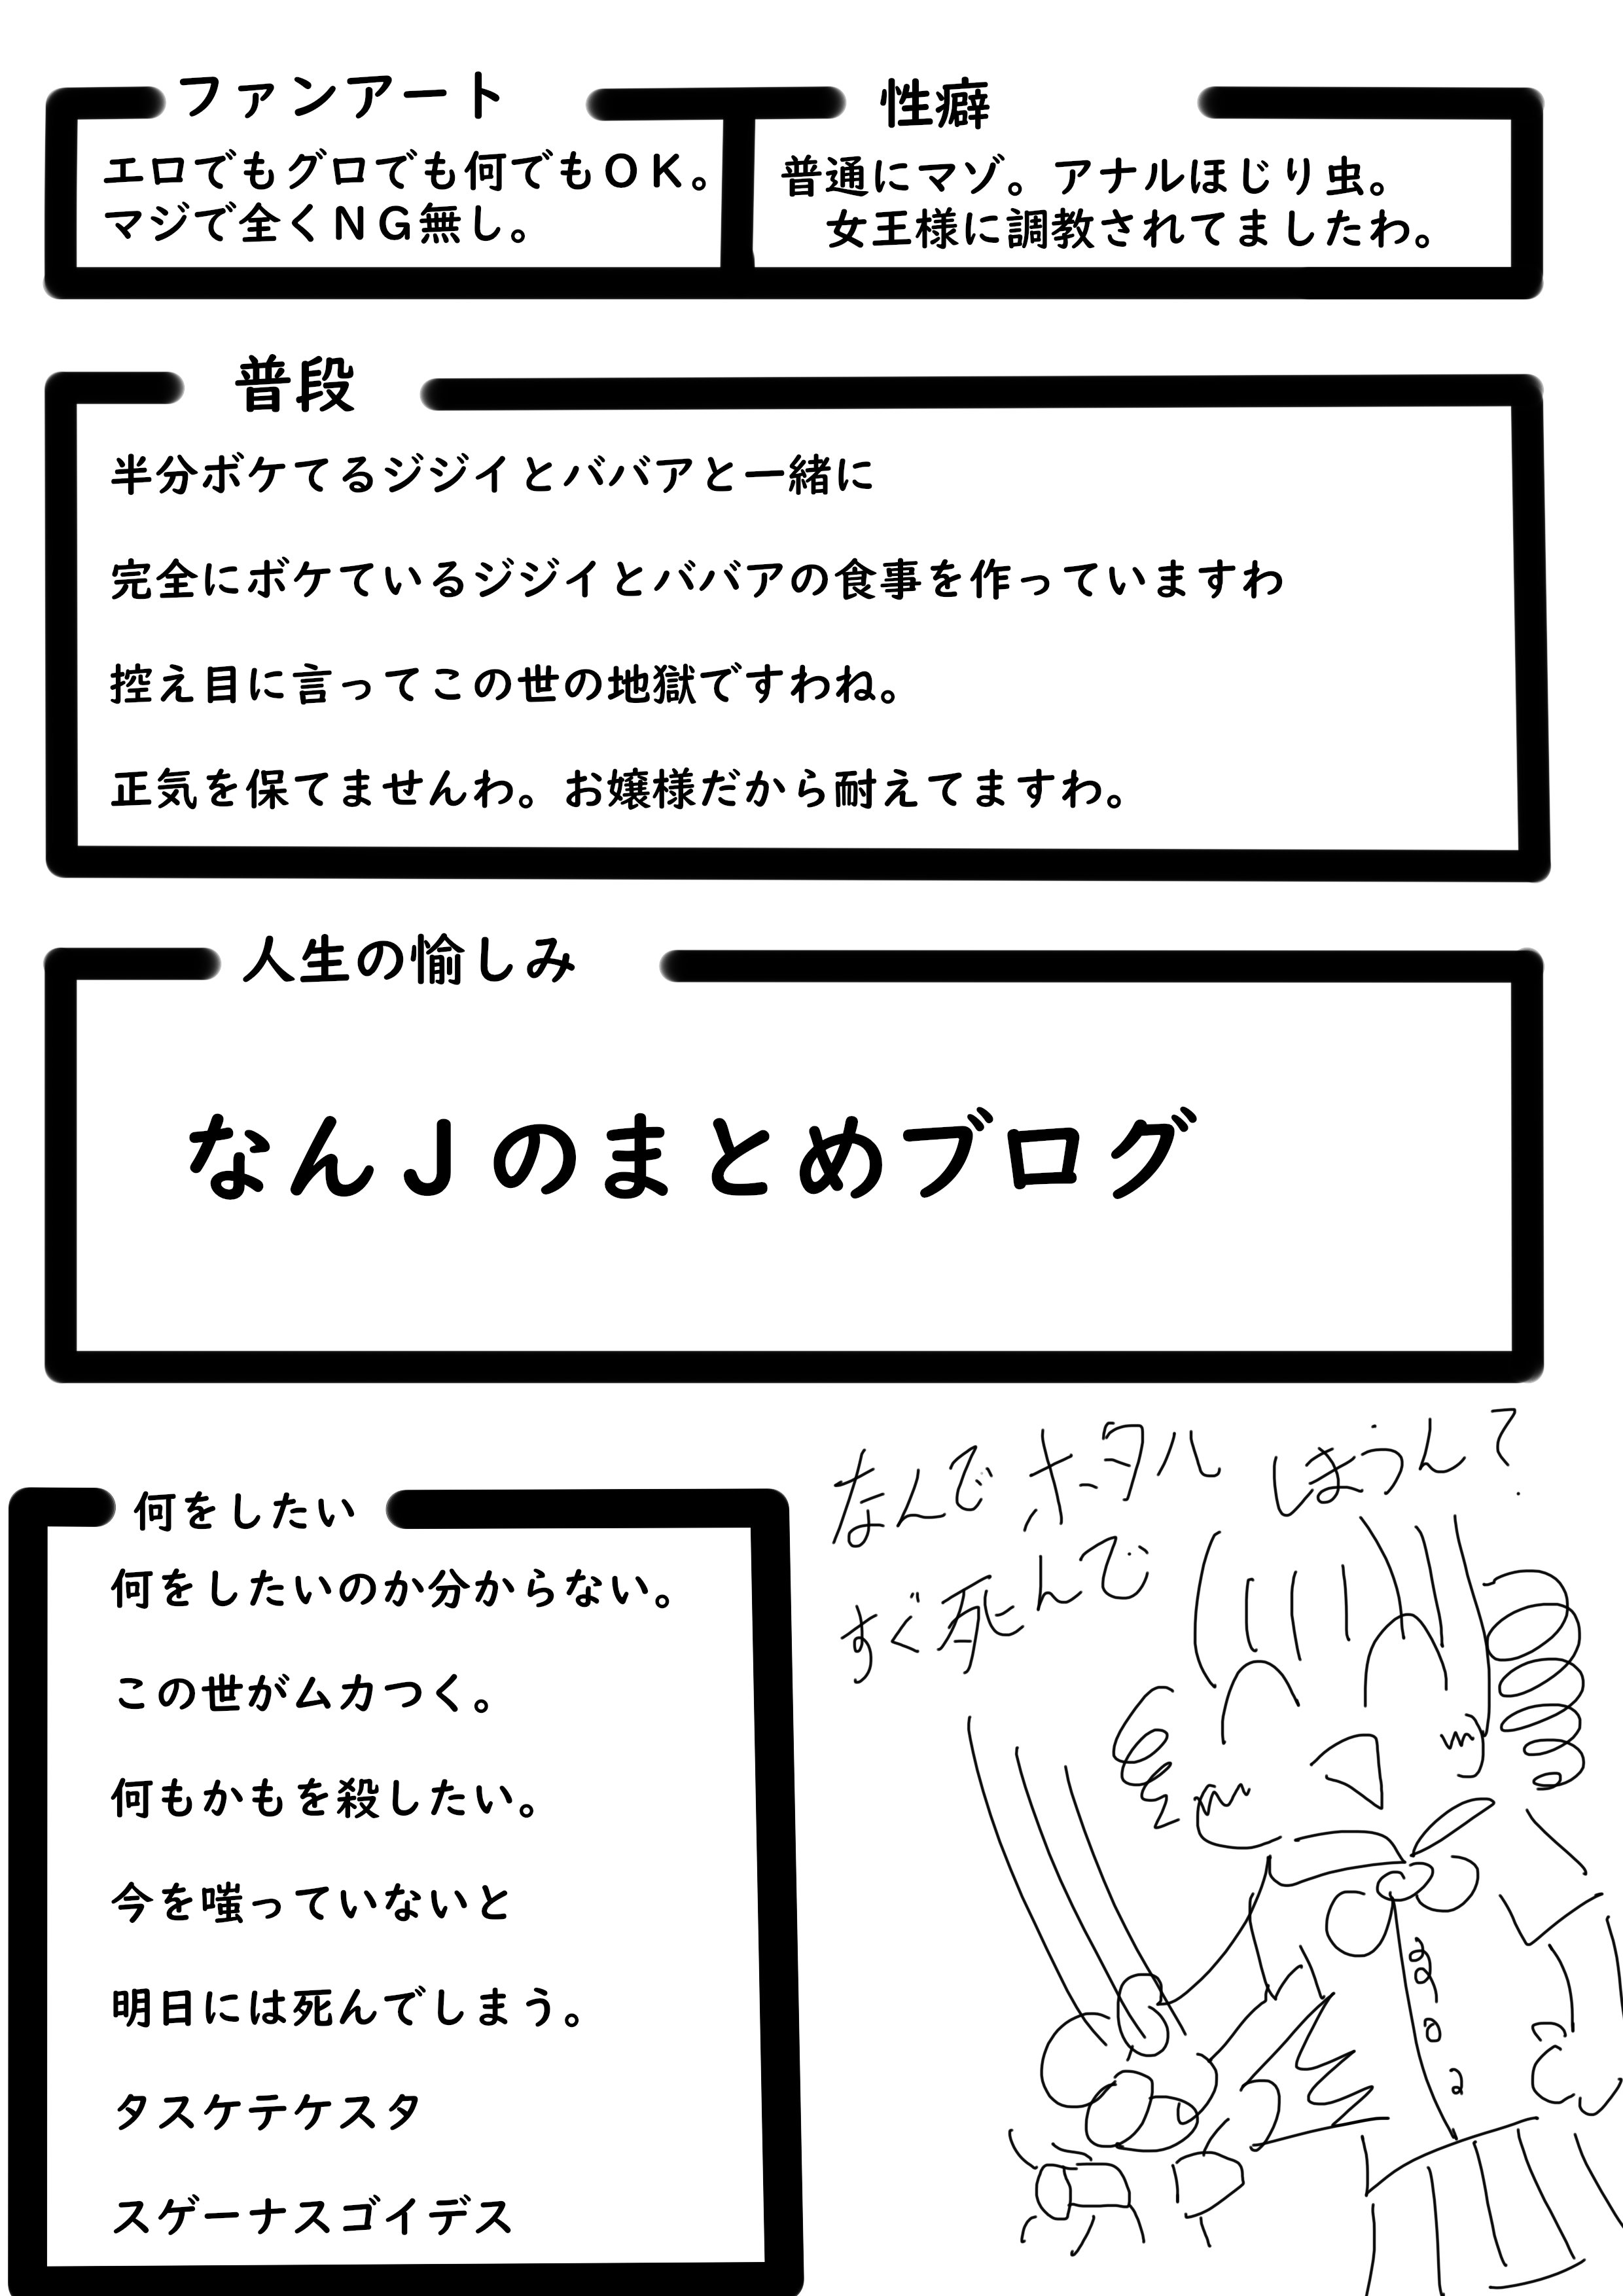 ファンアート
エロでもグロでも何でもＯＫ。
マジで全くＮＧ無し。
性癖
普通にマゾ。アナルほじり虫。
女王様に調教されてましたわ。
普段
半分ボケてるジジイとババアと一緒に
完全にボケているジジイとババアの食事を作っていますわ
控え目に言ってこの世の地獄ですわね。
正気を保てませんわ。お嬢様だから耐えてますわ。
人生の愉しみ
なんＪのまとめブログ
何をしたい
何をしたいのか分からない。
この世がムカつく。
何もかもを殺したい。
今を嗤っていないと
明日には死んでしまう。
タスケテケスタ
スゲーナスゴイデス
なんでホタル
すぐ死んで